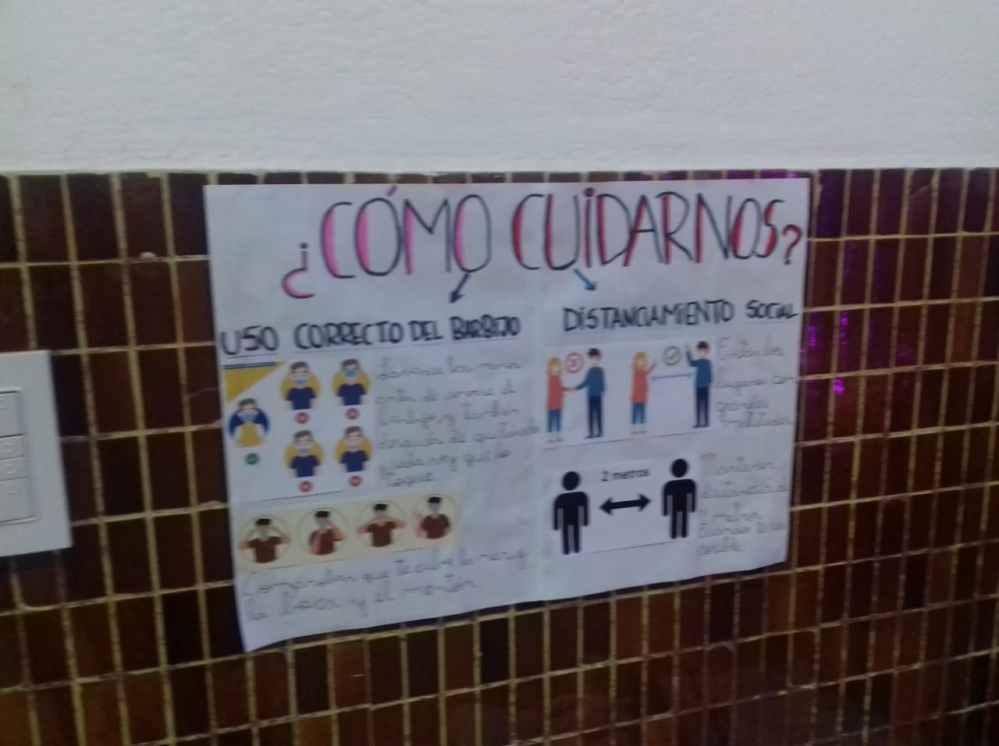 ¿CÓMO CUIDARNOS?
USO CORRECTO DEL BARBIJO
Lavarse las manos
antes de ponerse el
barbijo y también
después de
cada vez que lo
toque
Comprobar que te cubra la nariz
la boca y el mentón
DISTANCIAMIENTO SOCIAL
Evitar los
lugares con
grandes
2 metros
Mantener
distancia
2 metros
cuando
posible